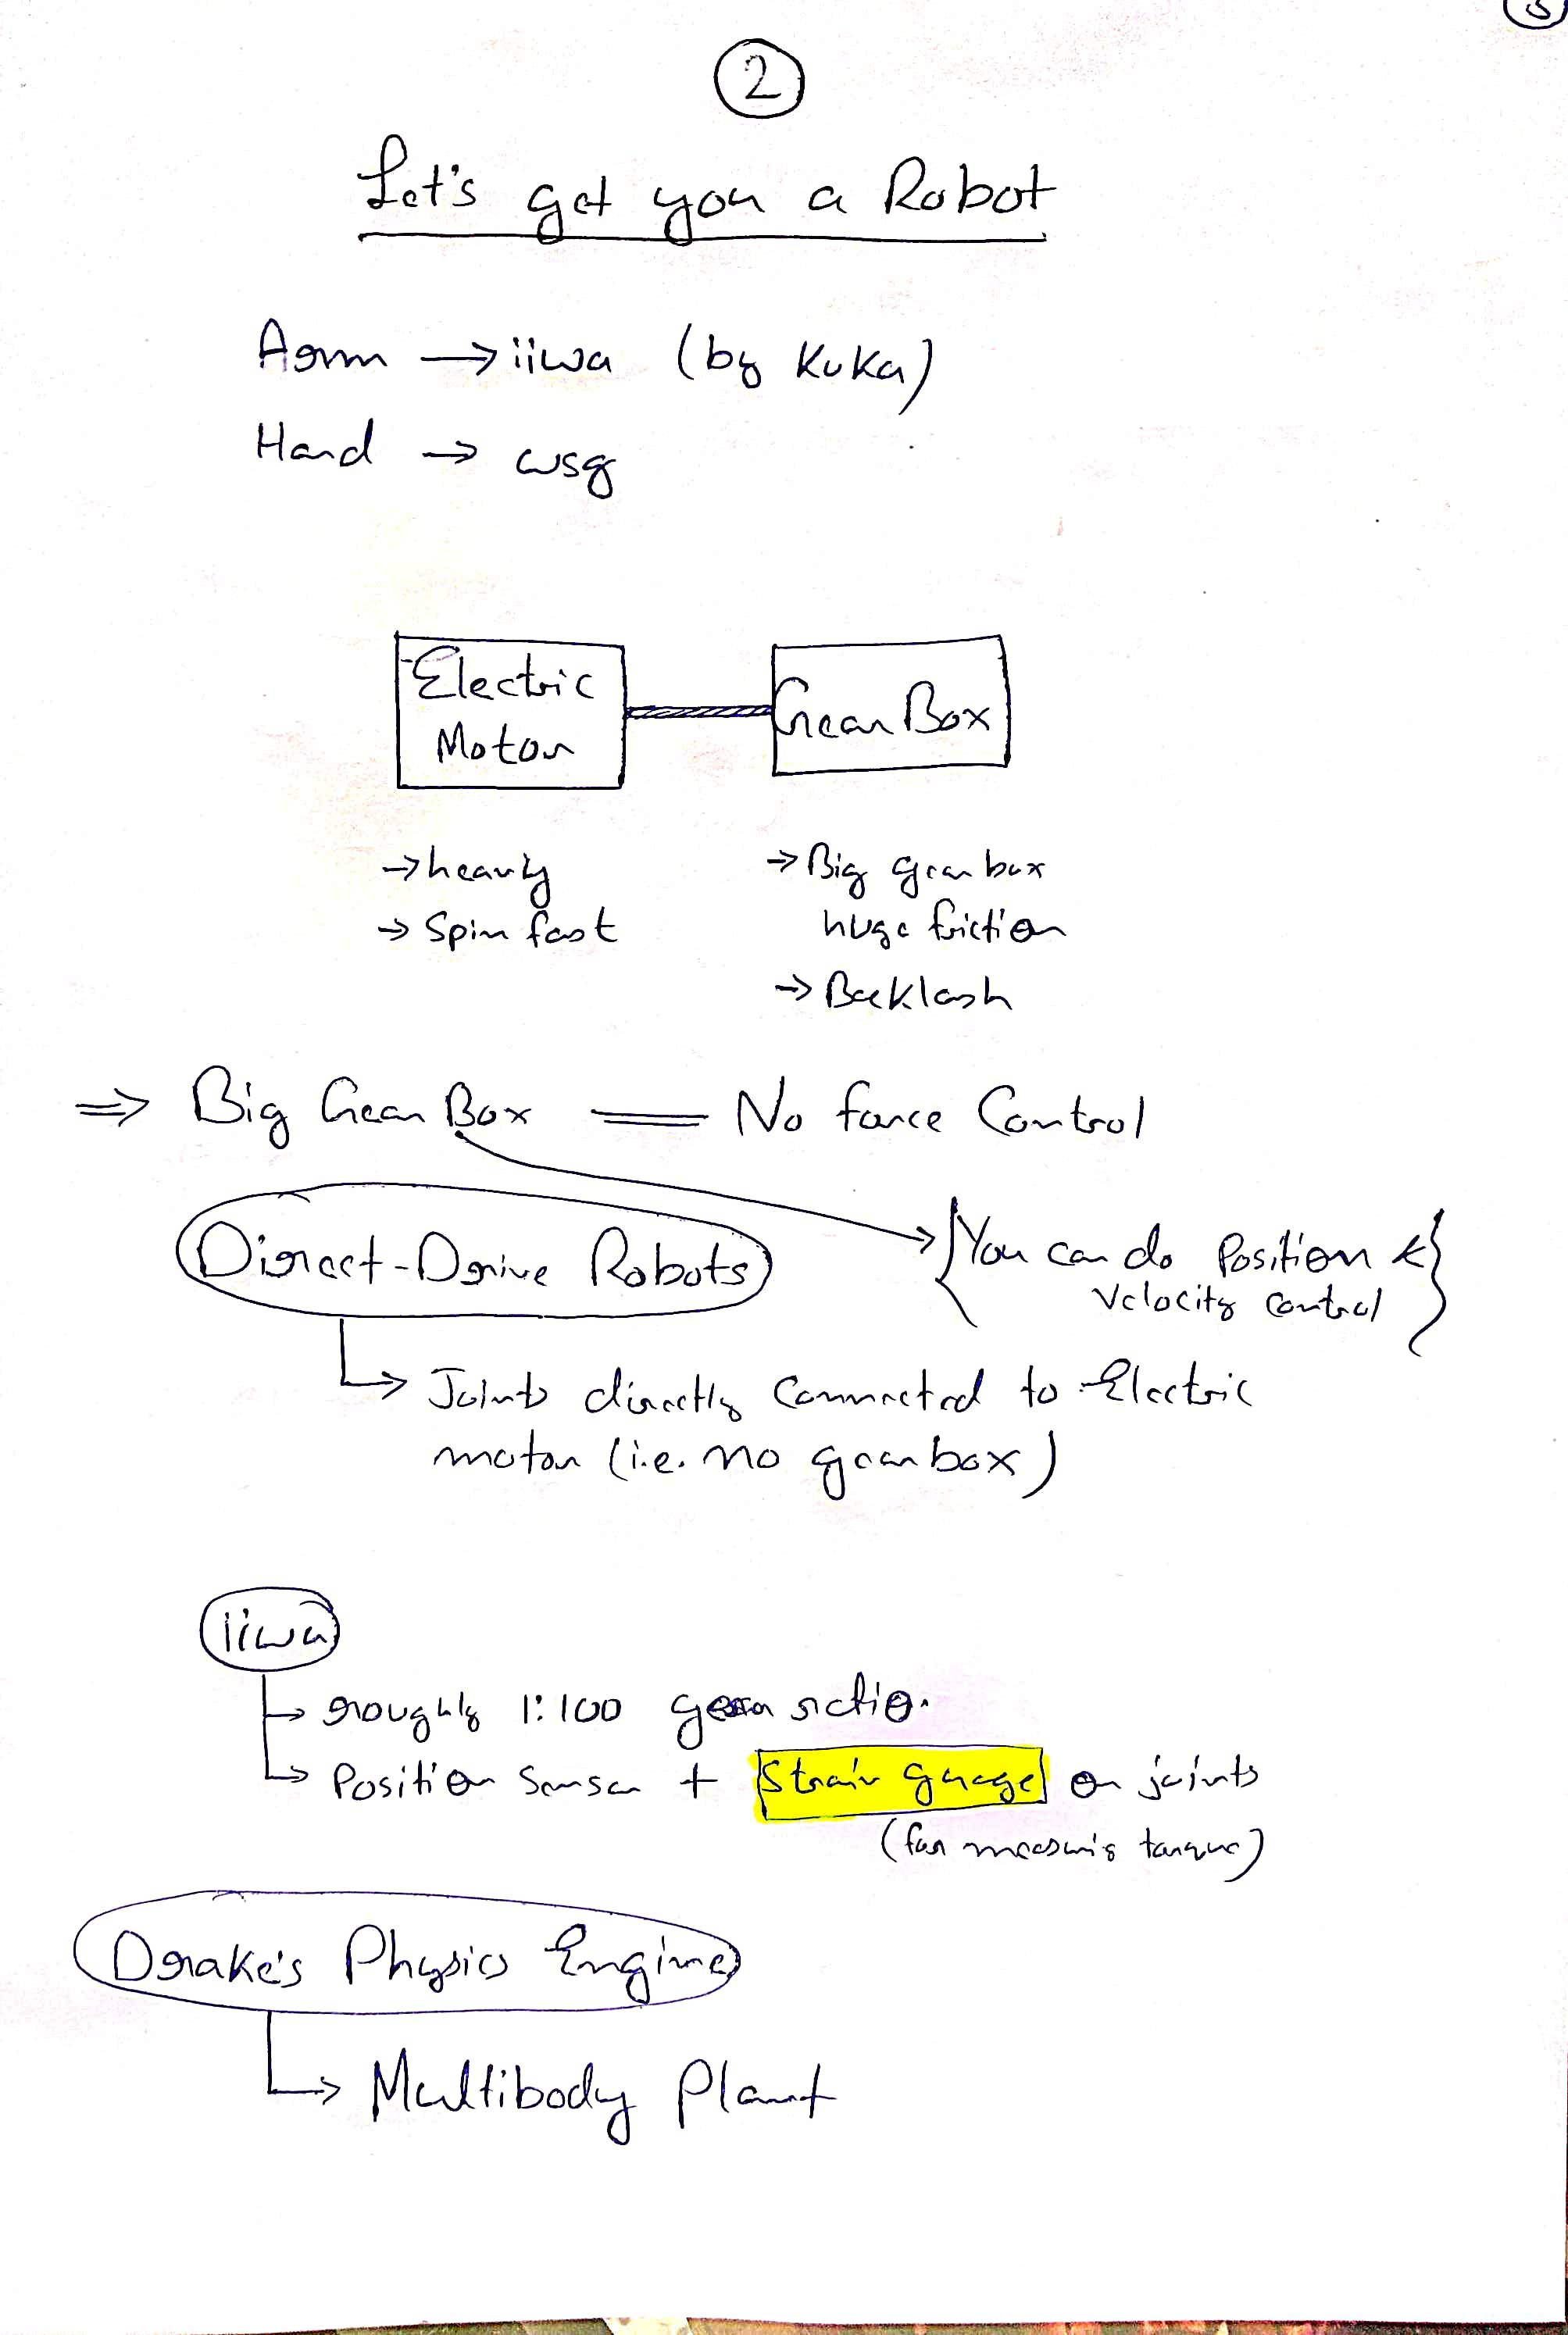 5
2
Let's get you a Robot
Arm → iiwa (by Kuka)
Hand → wsg
Electric
Motor
Gear Box
→ heavy
→ Spin fast
→ Big gear box
huge friction
→ Backlash
⇒ Big Gear Box = No force Control
Direct-Drive Robots
→ {You can do Position &
Velocity Control}
↳ Joints directly Connected to Electric
motor (i.e. no gear box)
iiwa
↳ roughly 1:100 gear ratio.
↳ Position Sensor + Strain guage on joints
(for measuring torque)
Drake's Physics Engine
↳ Multibody Plant